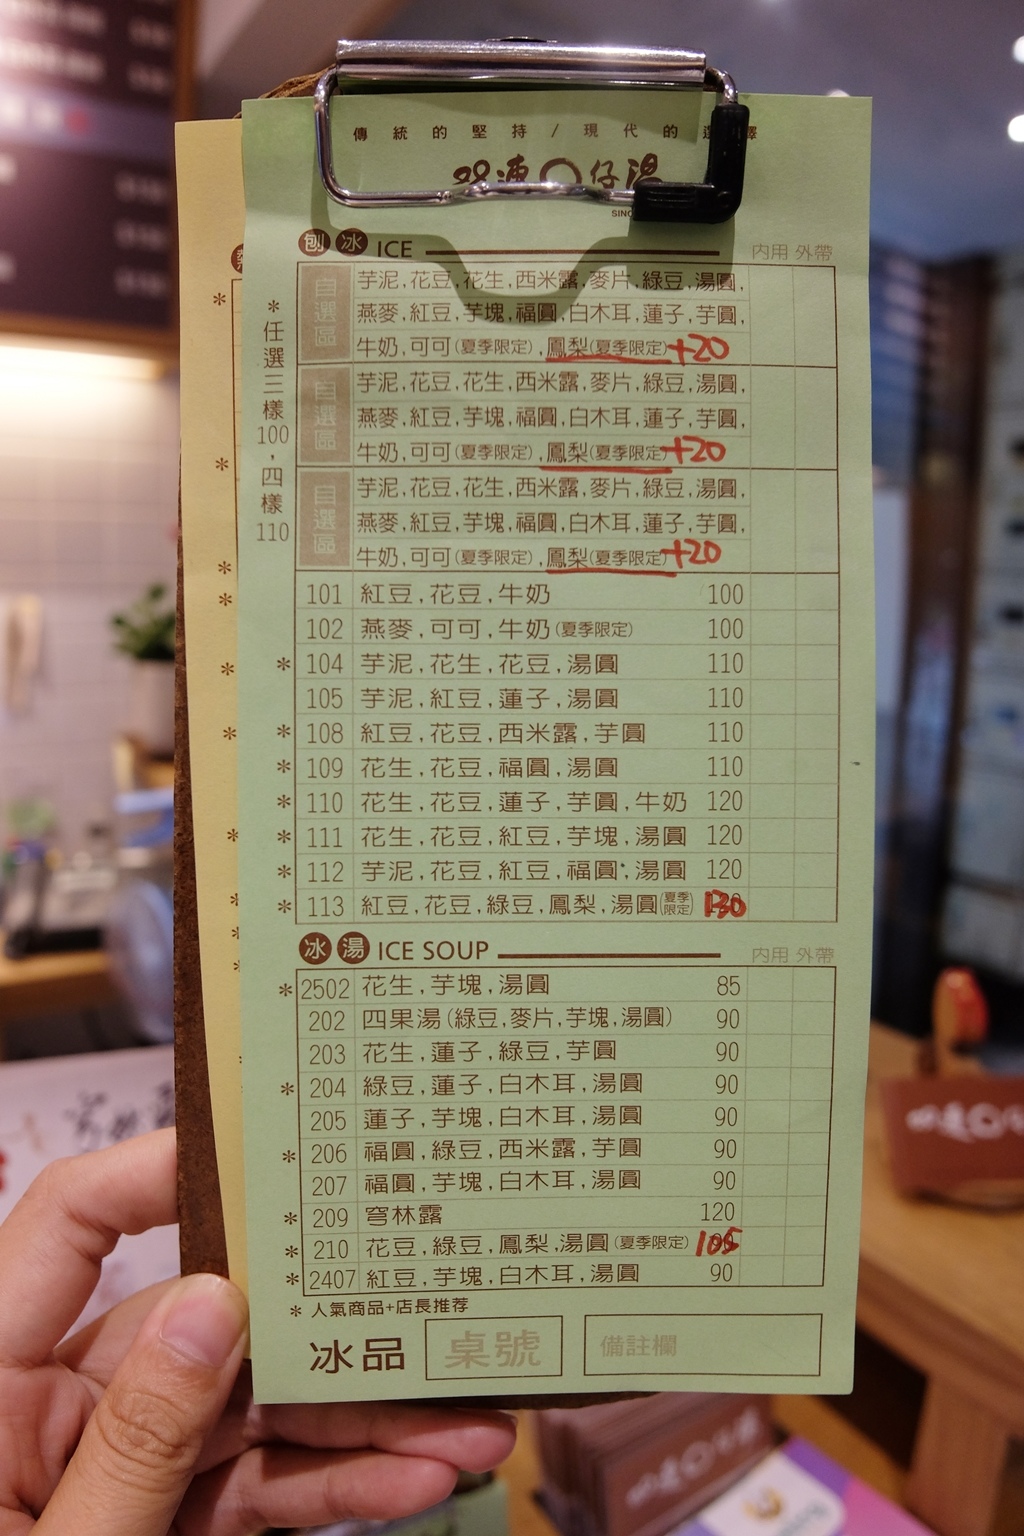 傳統的堅持/現代的選擇
双連O仔湯
刨冰 ICE 內用 外帶
*任選三樣100,四樣110
自選區
芋泥,花豆,花生,西米露,麥片,綠豆,湯圓,
燕麥,紅豆,芋塊,福圓,白木耳,蓮子,芋圓,
牛奶,可可(夏季限定),鳳梨(夏季限定)+20
自選區
芋泥,花豆,花生,西米露,麥片,綠豆,湯圓,
燕麥,紅豆,芋塊,福圓,白木耳,蓮子,芋圓,
牛奶,可可(夏季限定),鳳梨(夏季限定)+20
自選區
芋泥,花豆,花生,西米露,麥片,綠豆,湯圓,
燕麥,紅豆,芋塊,福圓,白木耳,蓮子,芋圓,
牛奶,可可(夏季限定),鳳梨(夏季限定)+20
101 紅豆,花豆,牛奶 100
102 燕麥,可可,牛奶(夏季限定) 100
*104 芋泥,花生,花豆,湯圓 110
105 芋泥,紅豆,蓮子,湯圓 110
*108 紅豆,花豆,西米露,芋圓 110
*109 花生,花豆,福圓,湯圓 110
*110 花生,花豆,蓮子,芋圓,牛奶 120
*111 花生,花豆,紅豆,芋塊,湯圓 120
*112 芋泥,花豆,紅豆,福圓,湯圓 120
*113 紅豆,花豆,綠豆,鳳梨,湯圓(夏季限定) 130
冰湯 ICE SOUP 內用 外帶
*2502 花生,芋塊,湯圓 85
202 四果湯(綠豆,麥片,芋塊,湯圓) 90
203 花生,蓮子,綠豆,芋圓 90
*204 綠豆,蓮子,白木耳,湯圓 90
205 蓮子,芋塊,白木耳,湯圓 90
*206 福圓,綠豆,西米露,芋圓 90
207 福圓,芋塊,白木耳,湯圓 90
*209 穹林露 120
*210 花豆,綠豆,鳳梨,湯圓(夏季限定) 105
*2407 紅豆,芋塊,白木耳,湯圓 90
*人氣商品+店長推荐
冰品 桌號 備註欄